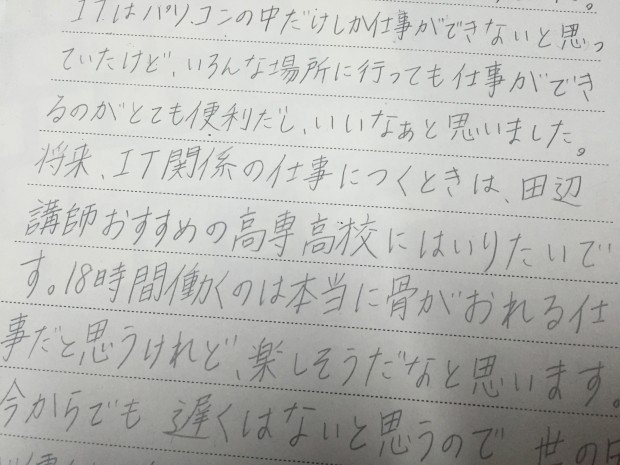 ITはパソコンの中だけしか仕事ができないと思っ
ていたけど、いろんな場所に行っても仕事ができ
るのがとても便利だし、いいなぁと思いました。
将来、IT関係の仕事につくときは、田辺
講師おすすめの高専高校にはいりたいで
す。18時間働くのは本当に骨がおれる仕
事だと思うけれど、楽しそうだなと思います。
今からでも遅くはないと思うので世の